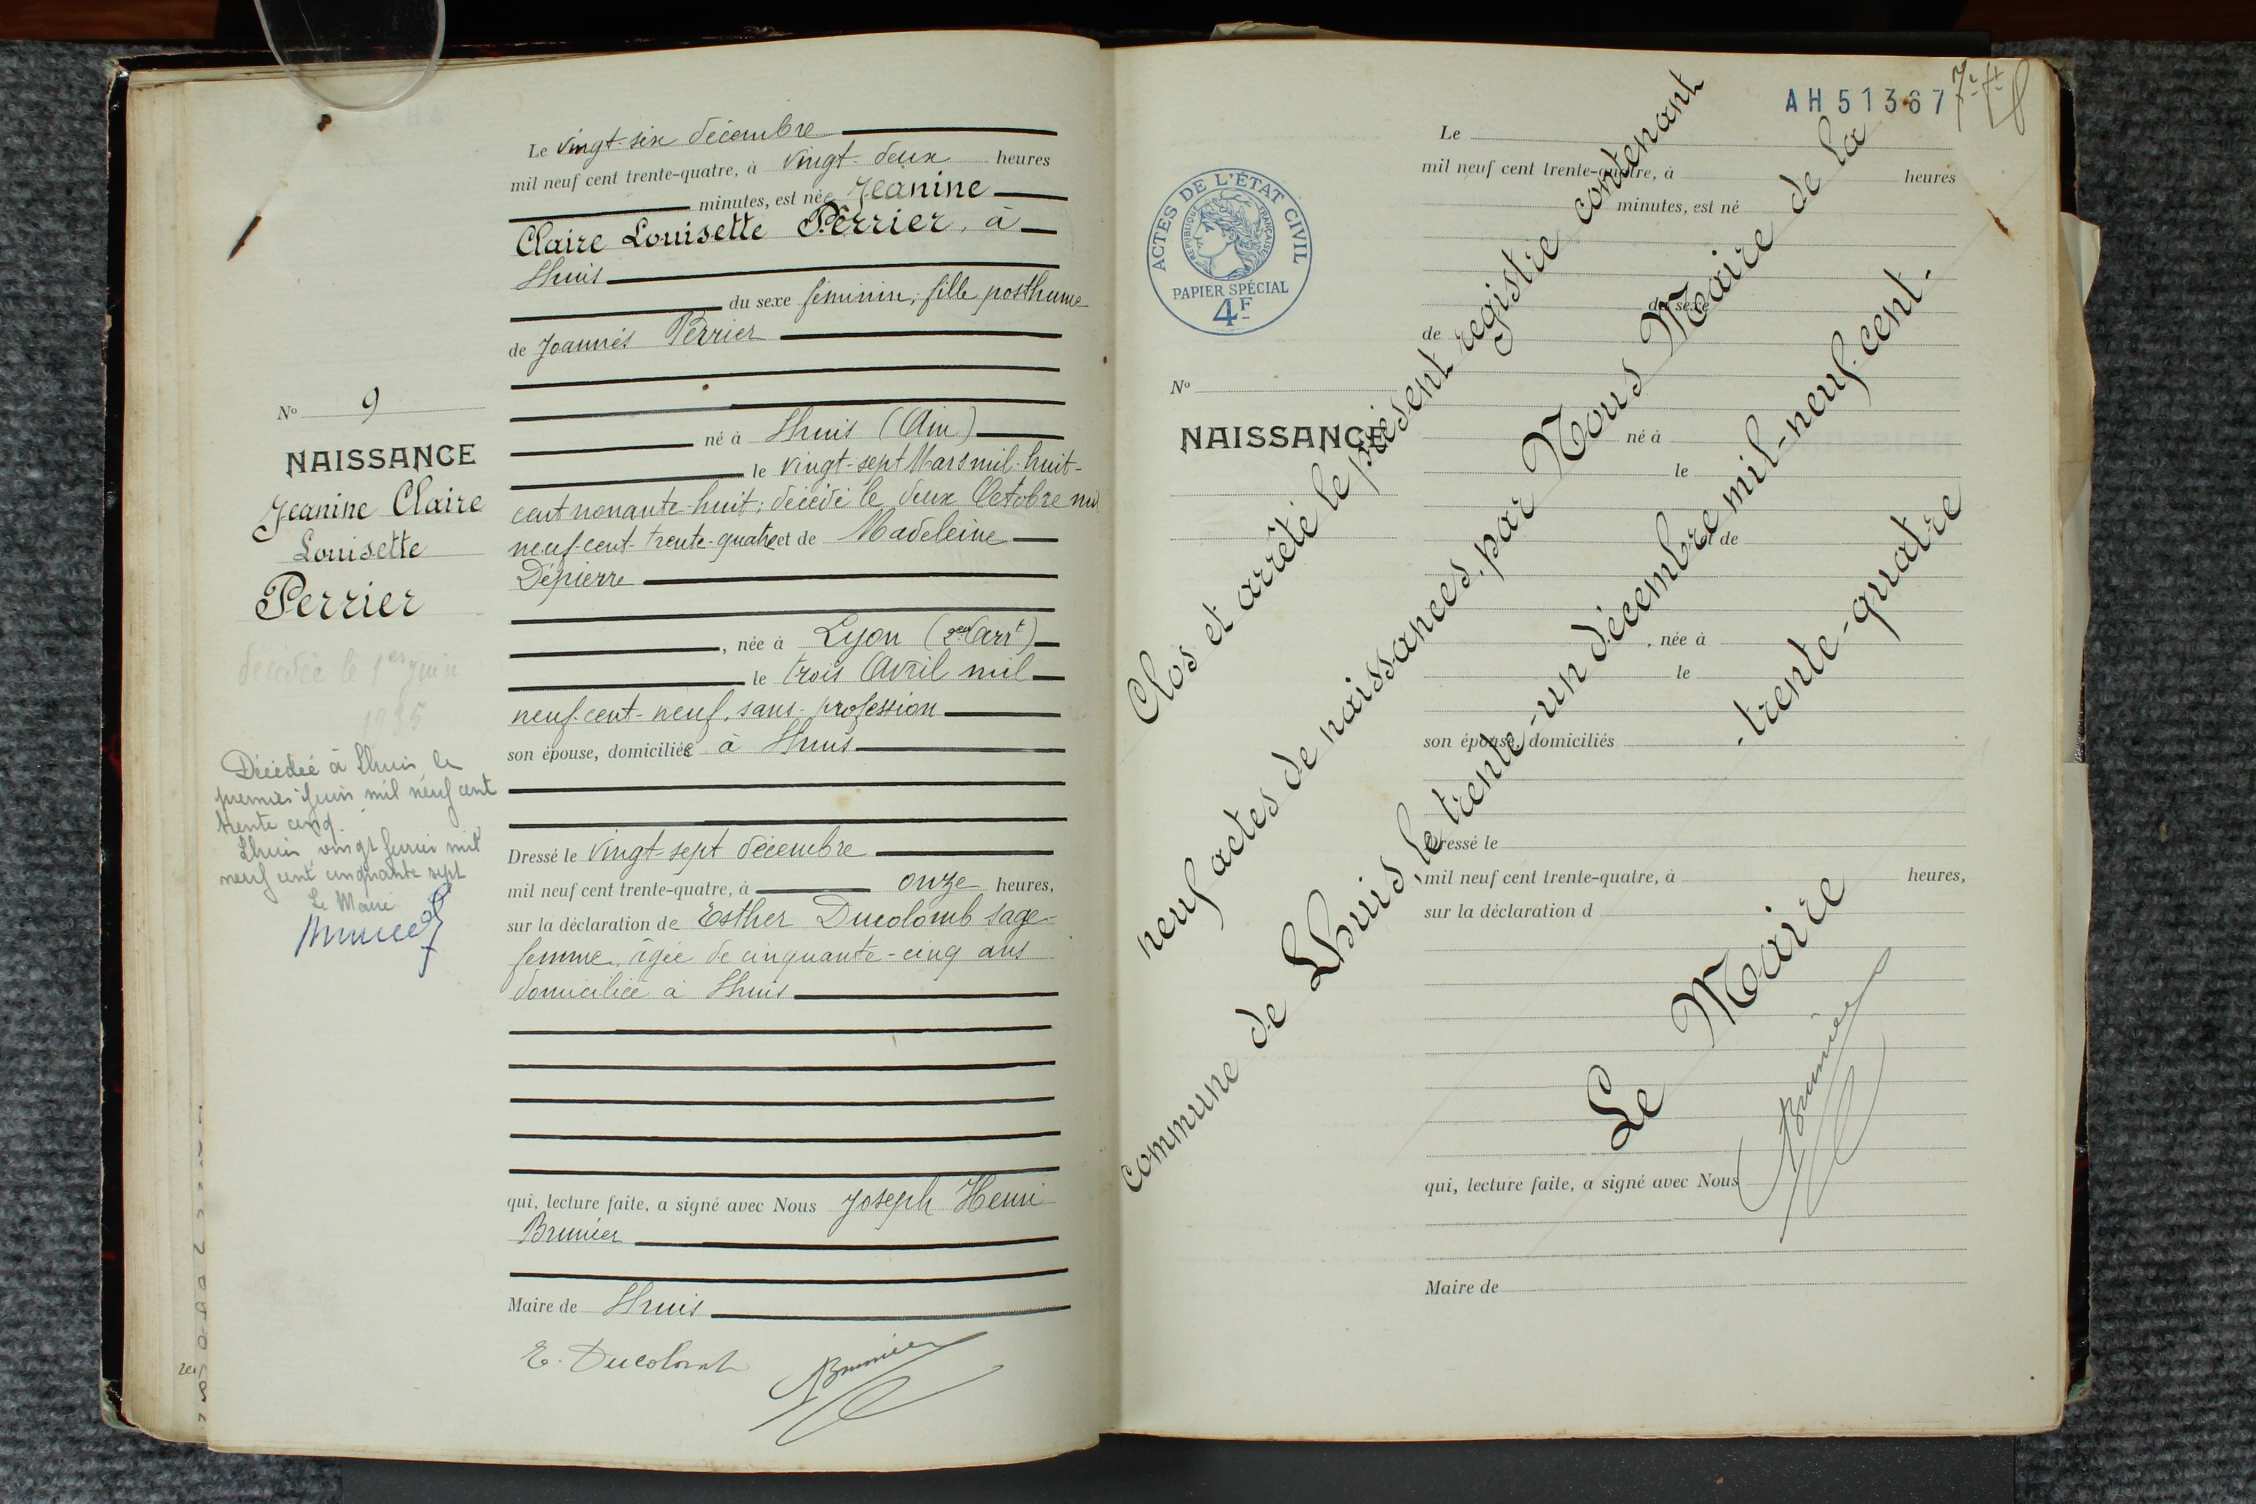 Nº 9
NAISSANCE
Jeanine Claire
Louisette
Perrier
décédée le 1er juin
1935
Décédée à Lhuis le
premier juin mil neuf cent
trente cinq.
Lhuis, vingt février mil
neuf cent cinquante sept
Le Maire
Le vingt-six décembre
mil neuf cent trente-quatre, à vingt-deux heures
minutes, est née Jeanine
Claire Louisette Perrier, à
Lhuis
du sexe féminin; fille posthume
de Joannès Perrier
né à Lhuis (Ain)
le vingt-sept Mars mil-huit-
cent nonante-huit; décédé le deux Octobre mil
neuf-cent-trente-quatre et de Madeleine
Dépierre
, née à Lyon (2eme arrt)
le trois Avril mil
neuf-cent-neuf, sans profession
son épouse, domiciliée à Lhuis
Dressé le vingt-sept décembre
mil neuf cent trente-quatre, à onze heures,
sur la déclaration de Esther Ducolomb sage-
femme, âgée de cinquante-cinq ans
domiciliée à Lhuis
qui, lecture faite, a signé avec Nous Joseph Henri
Brunier
Maire de Lhuis
E. Ducolomb
Brunier
AH51367
ACTES DE L'ÉTAT CIVIL
RÉPUBLIQUE FRANÇAISE
PAPIER SPÉCIAL
4F
Nº
NAISSANCE
Le
mil neuf cent trente-quatre, à heures
minutes, est né
du sexe
de
né à
le
et de
, née à
le
son épouse, domiciliés
Dressé le
mil neuf cent trente-quatre, à heures,
sur la déclaration d
qui, lecture faite, a signé avec Nous
Maire de
Clos et arrêté le présent registre contenant
neuf actes de naissances, par Nous Maire de la
commune de Lhuis, le trente-un décembre mil-neuf-cent-
-trente-quatre
Le Maire
Brunier